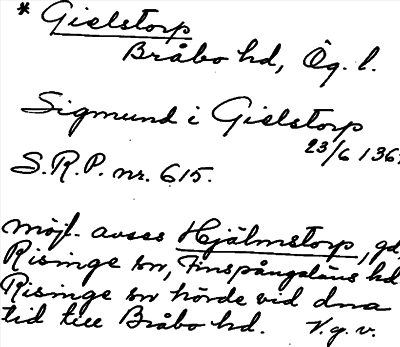 * Gislstorp
Bråbo hd, Ög. l.
Sigmund i Gislstorp
23/6 136
S.R.P. nr. 615.
möjl. avses Hjälmstorp, gd,
Risinge sn, Finspångaläns hd
Risinge sn hörde vid dna
tid till Bråbo hd. V.g.v.